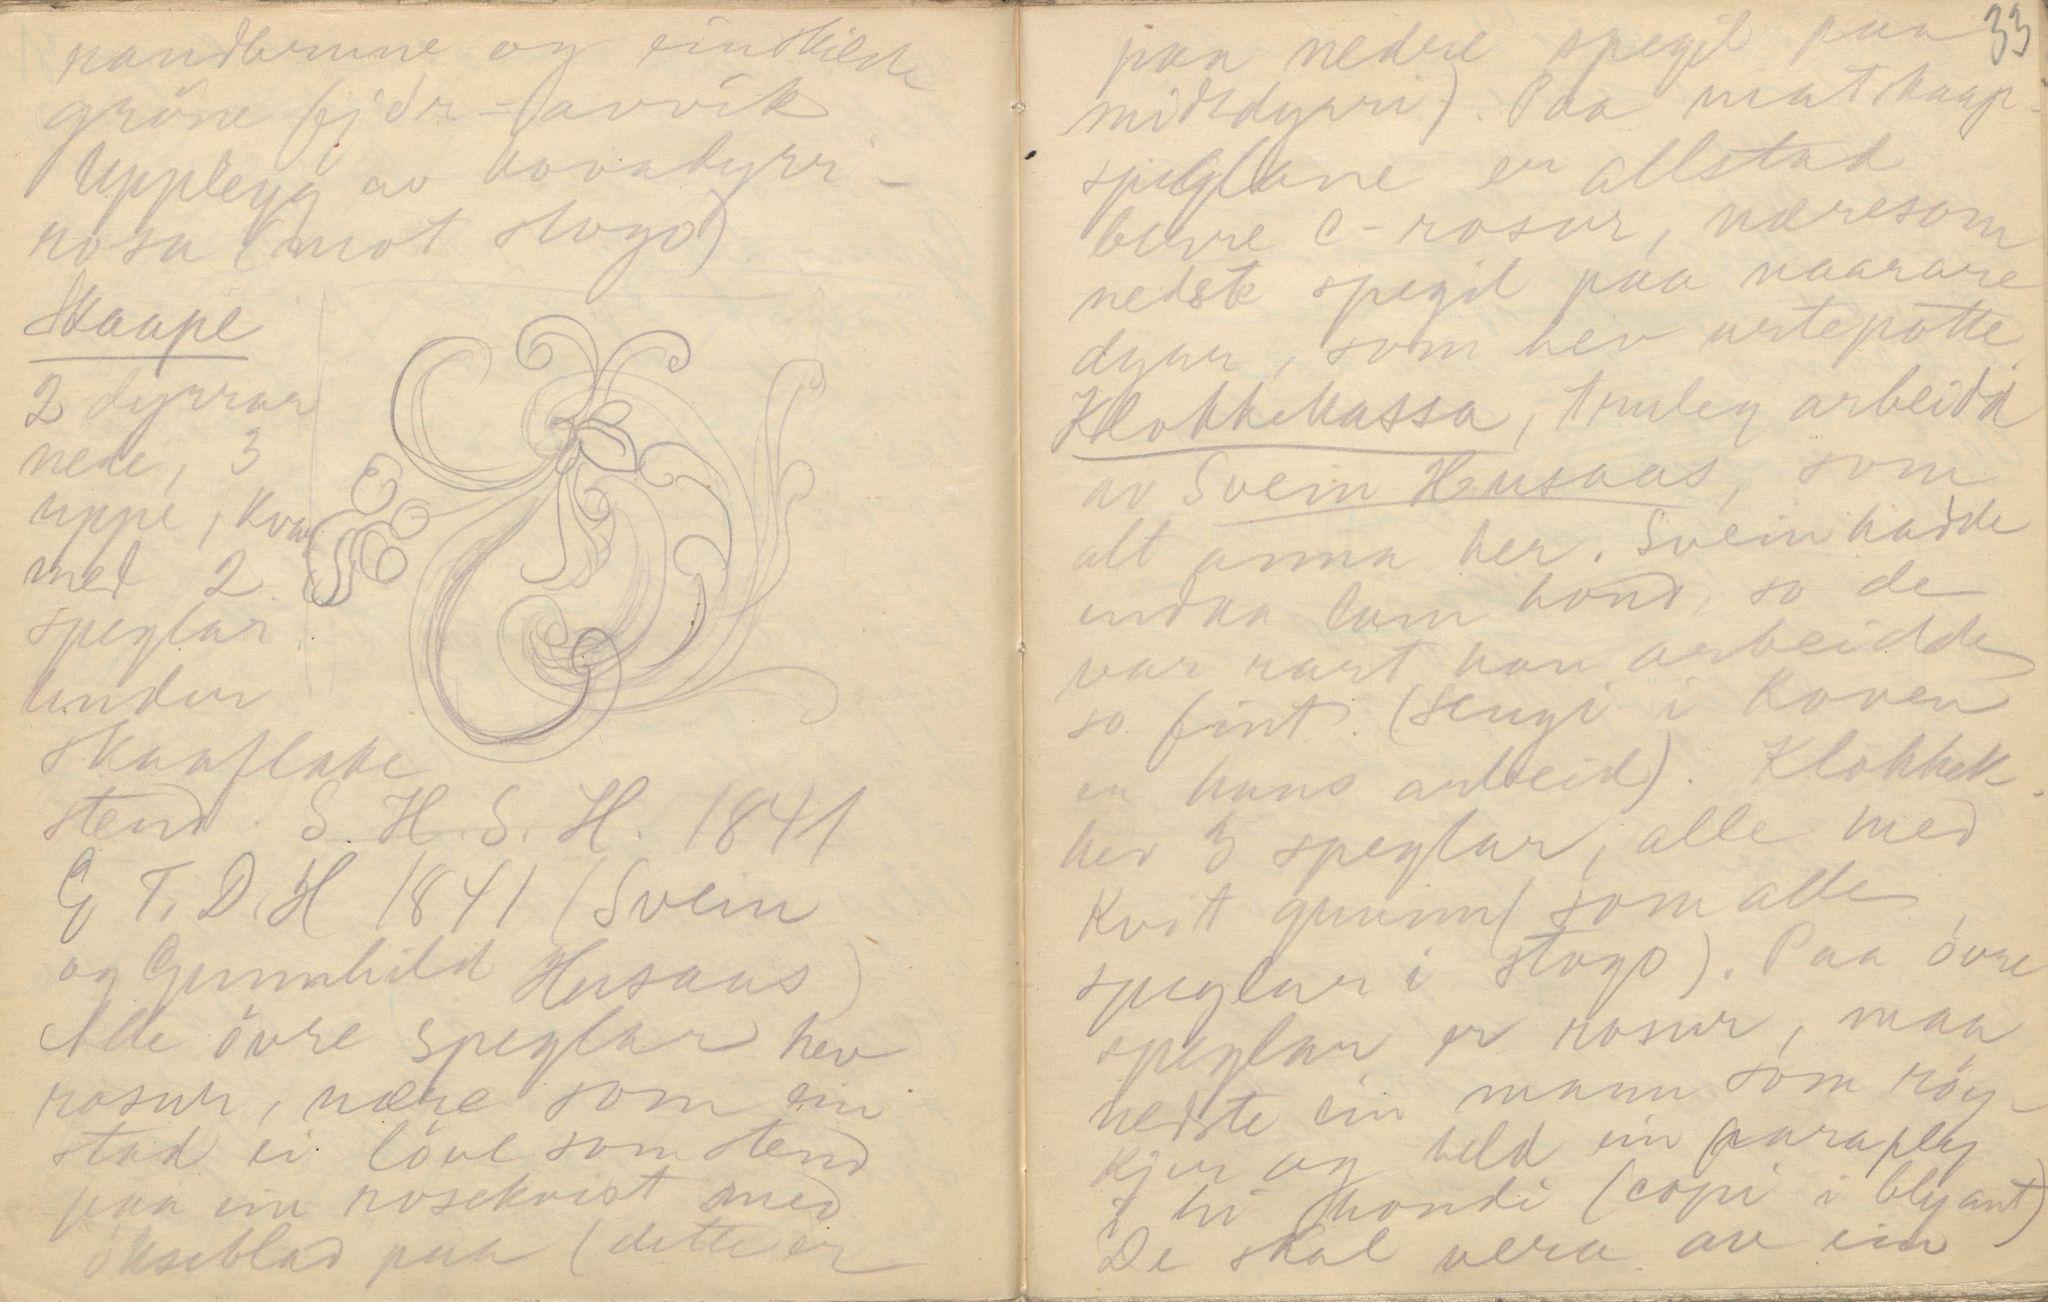 randlerune og einskilde
gröne fjör-avvik
Upplegg av hovudyrri-
rosa (mot stogo)
Skaape
2 dyrrar
nede, 3
uppe, kvar
med 2
speglar
undur
skaaflake
stend S. H. S. H. 1841
G T. D. H 1841 (Svein
og Gunnhild Husaas)
Alle övre speglar hev
rosur, nære som ein
stad ei löve som stend
paa ein rosekvist med
ökseblad paa (dette er
33
paa nedre spegil paa
midtdyrri). Paa matskaap-
speglane er allstad
berre C-rosur, næresom
nedste spegil paa vaarare
dyrr, som hev urtepotte.
Klokkekassa, truleg arbeidd
av Svein Husaas, som
alt anna her. Svein hadde
endaa lam hond, so de
var rart han arbeidde
so fint. (Sengi i koven
er hans arbeid). Klokkek.
hev 3 speglar, alle med
kvit grunn (som alle
speglar i stogo). Paa övre
speglar er rosur, maa
nedste ein mann som röy-
kjer og held ein paraply
i hi hondi (copi i blyant)
De skal vera av ein